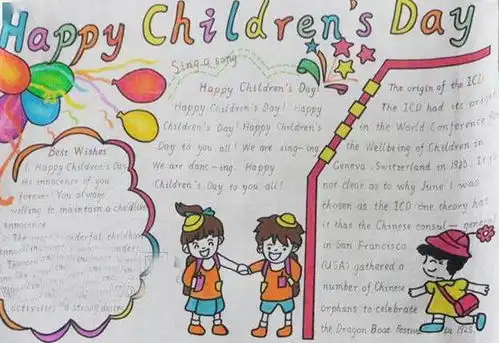 Happy Children's Day
Sing a song
Happy Children's Day!
Happy Children's Day! Happy
Children's Day! Happy Children's
Day to you all! We are sing-ing
We are danc-ing. Happy
Children's Day to you all!
Best Wishes
1. Happy Children's Day
innocence of you
forever. You always
willing to maintain a childlike
innocence
2. The most wonderful childhood
activities a strong desire
The origin of the ICD
The ICD had its origin
in the World Conference for
the Wellbeing of Children in
Geneva. Switzerland in 1925. It is
not clear as to why June 1 was
chosen as the ICD one theory has
it that the Chinese consul-general
in San Francisco
(USA) gathered a
number of Chinese
orphans to celebrate
the Dragon Boat Festival in 1925.